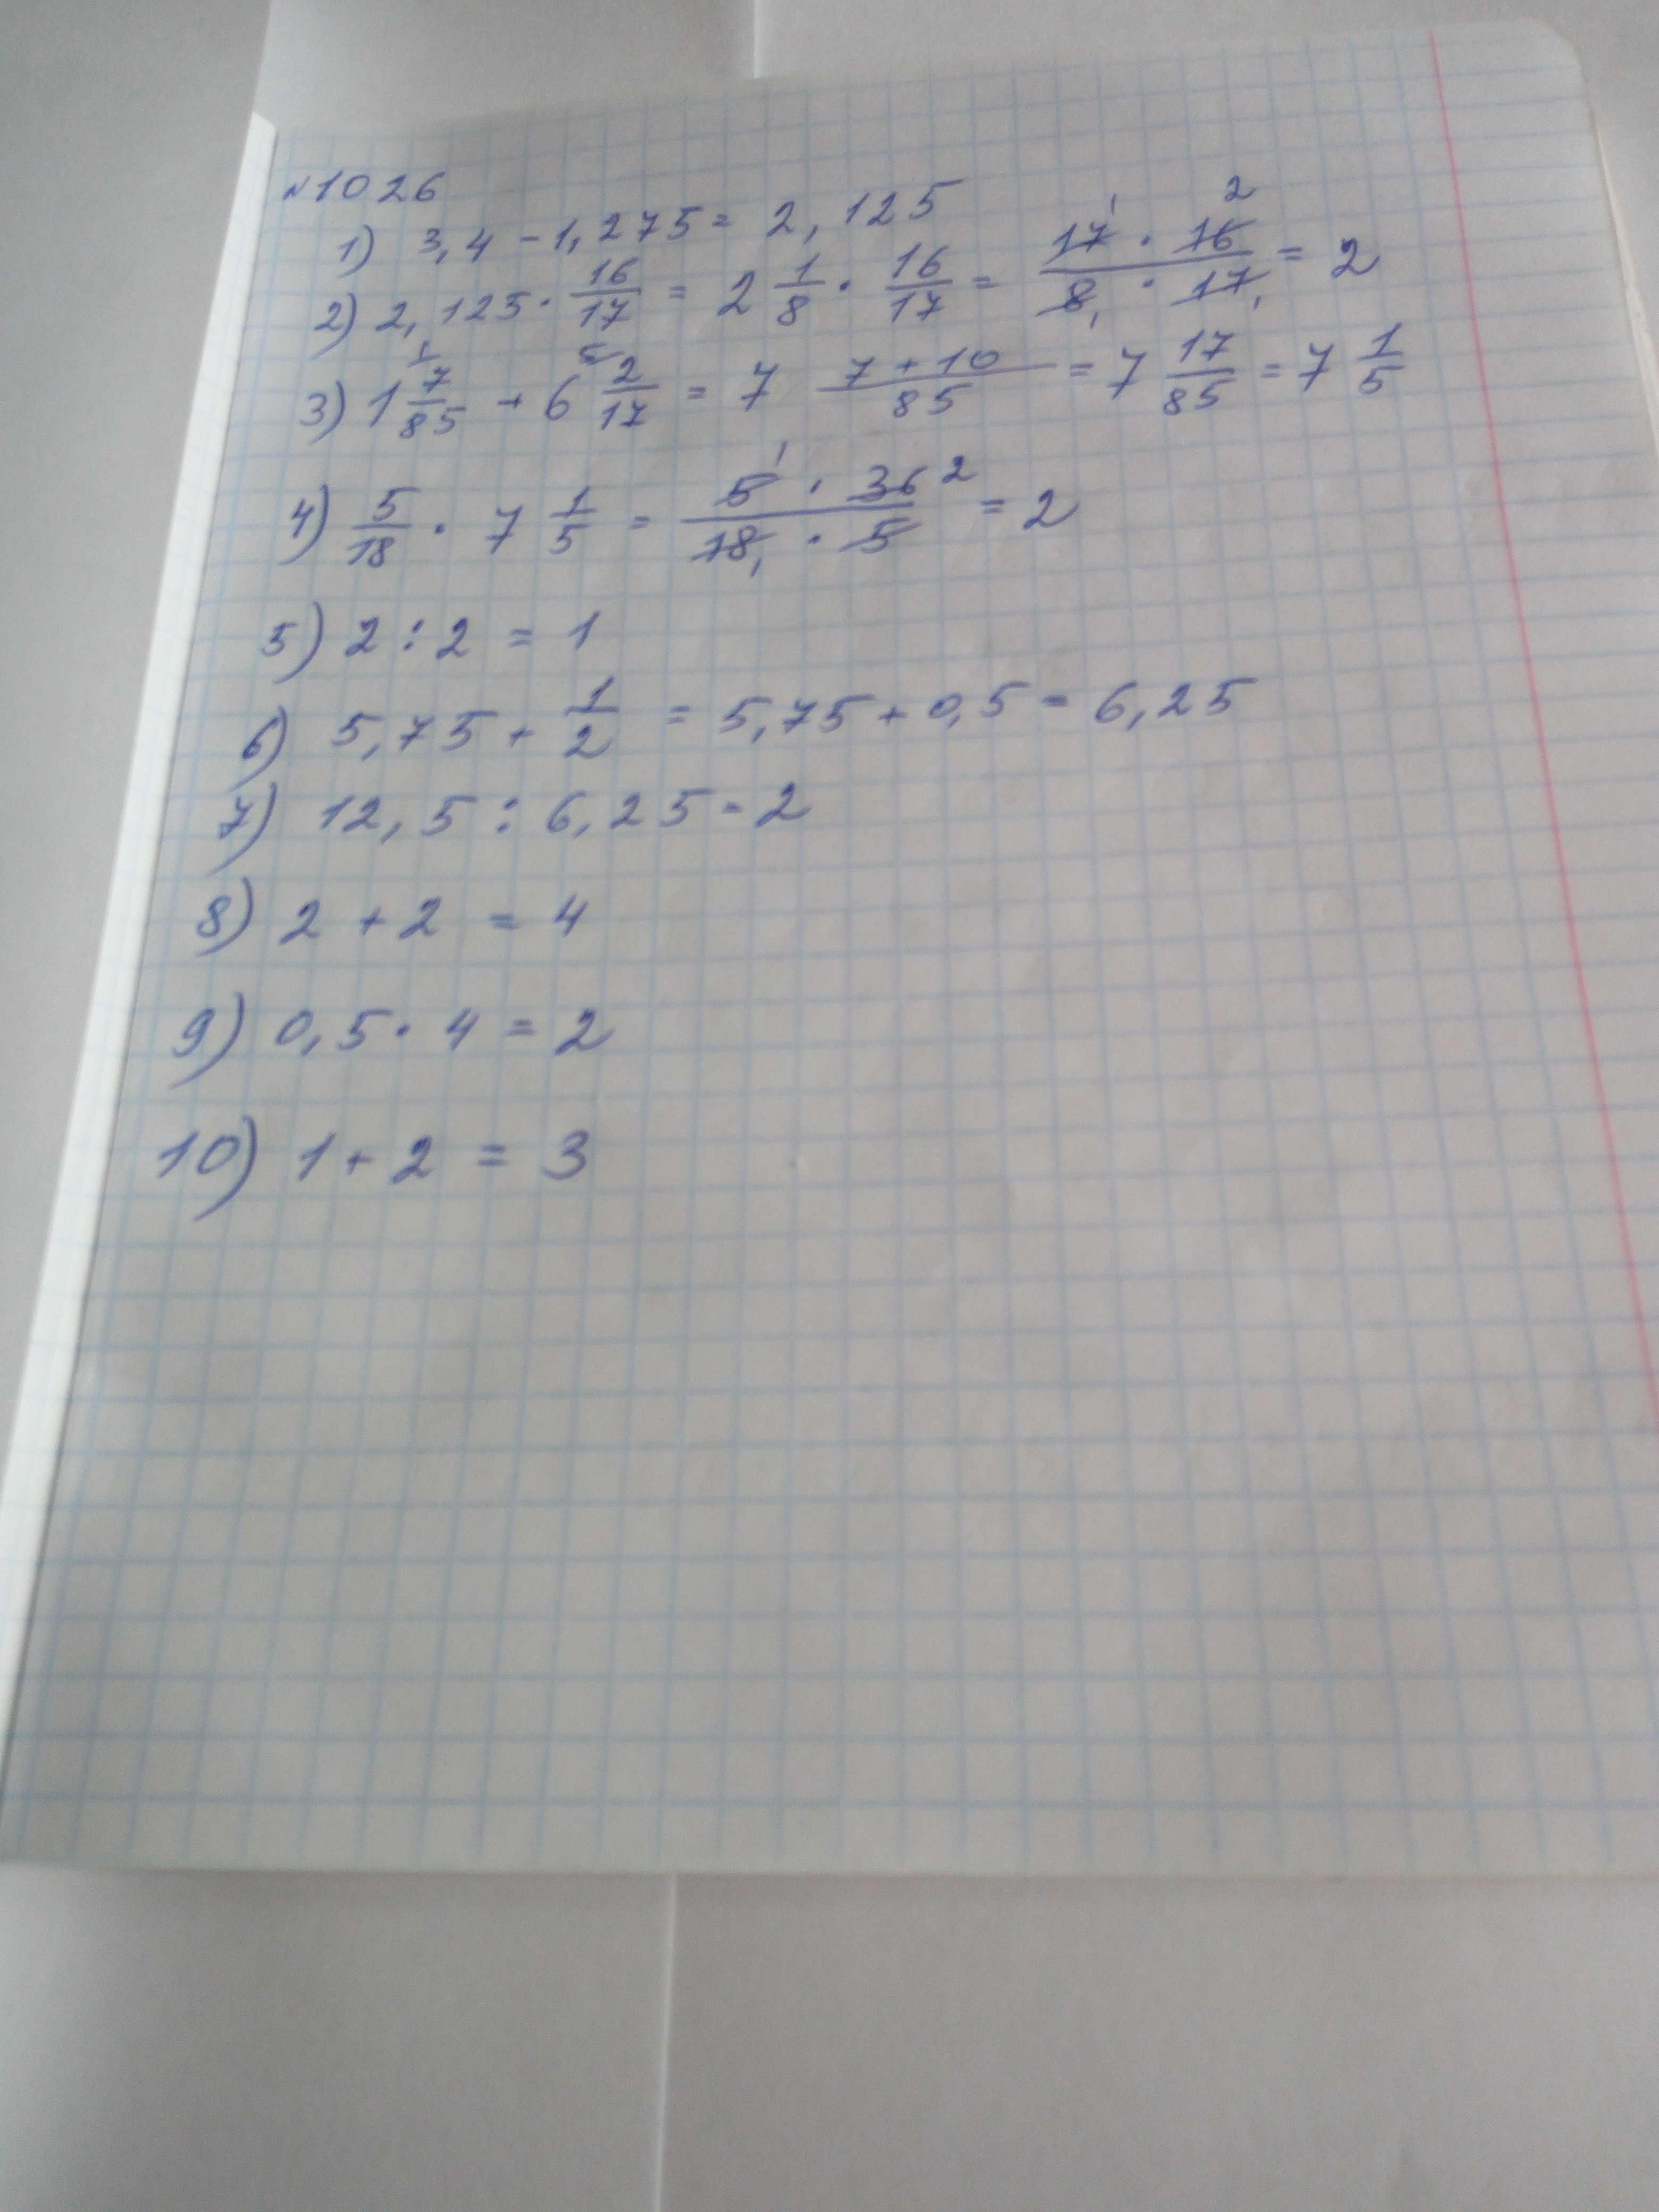 №1026
1) 3,4 - 1,275 = 2,125
2) 2,125 · 16/17 = 2 1/8 · 16/17 = 17 · 16 / 8 · 17 = 2
3) 1 7/85 + 6 2/17 = 7 7+10/85 = 7 17/85 = 7 1/5
4) 5/18 · 7 1/5 = 5 · 36 / 18 · 5 = 2
5) 2 : 2 = 1
6) 5,75 + 1/2 = 5,75 + 0,5 = 6,25
7) 12,5 : 6,25 = 2
8) 2 + 2 = 4
9) 0,5 · 4 = 2
10) 1 + 2 = 3